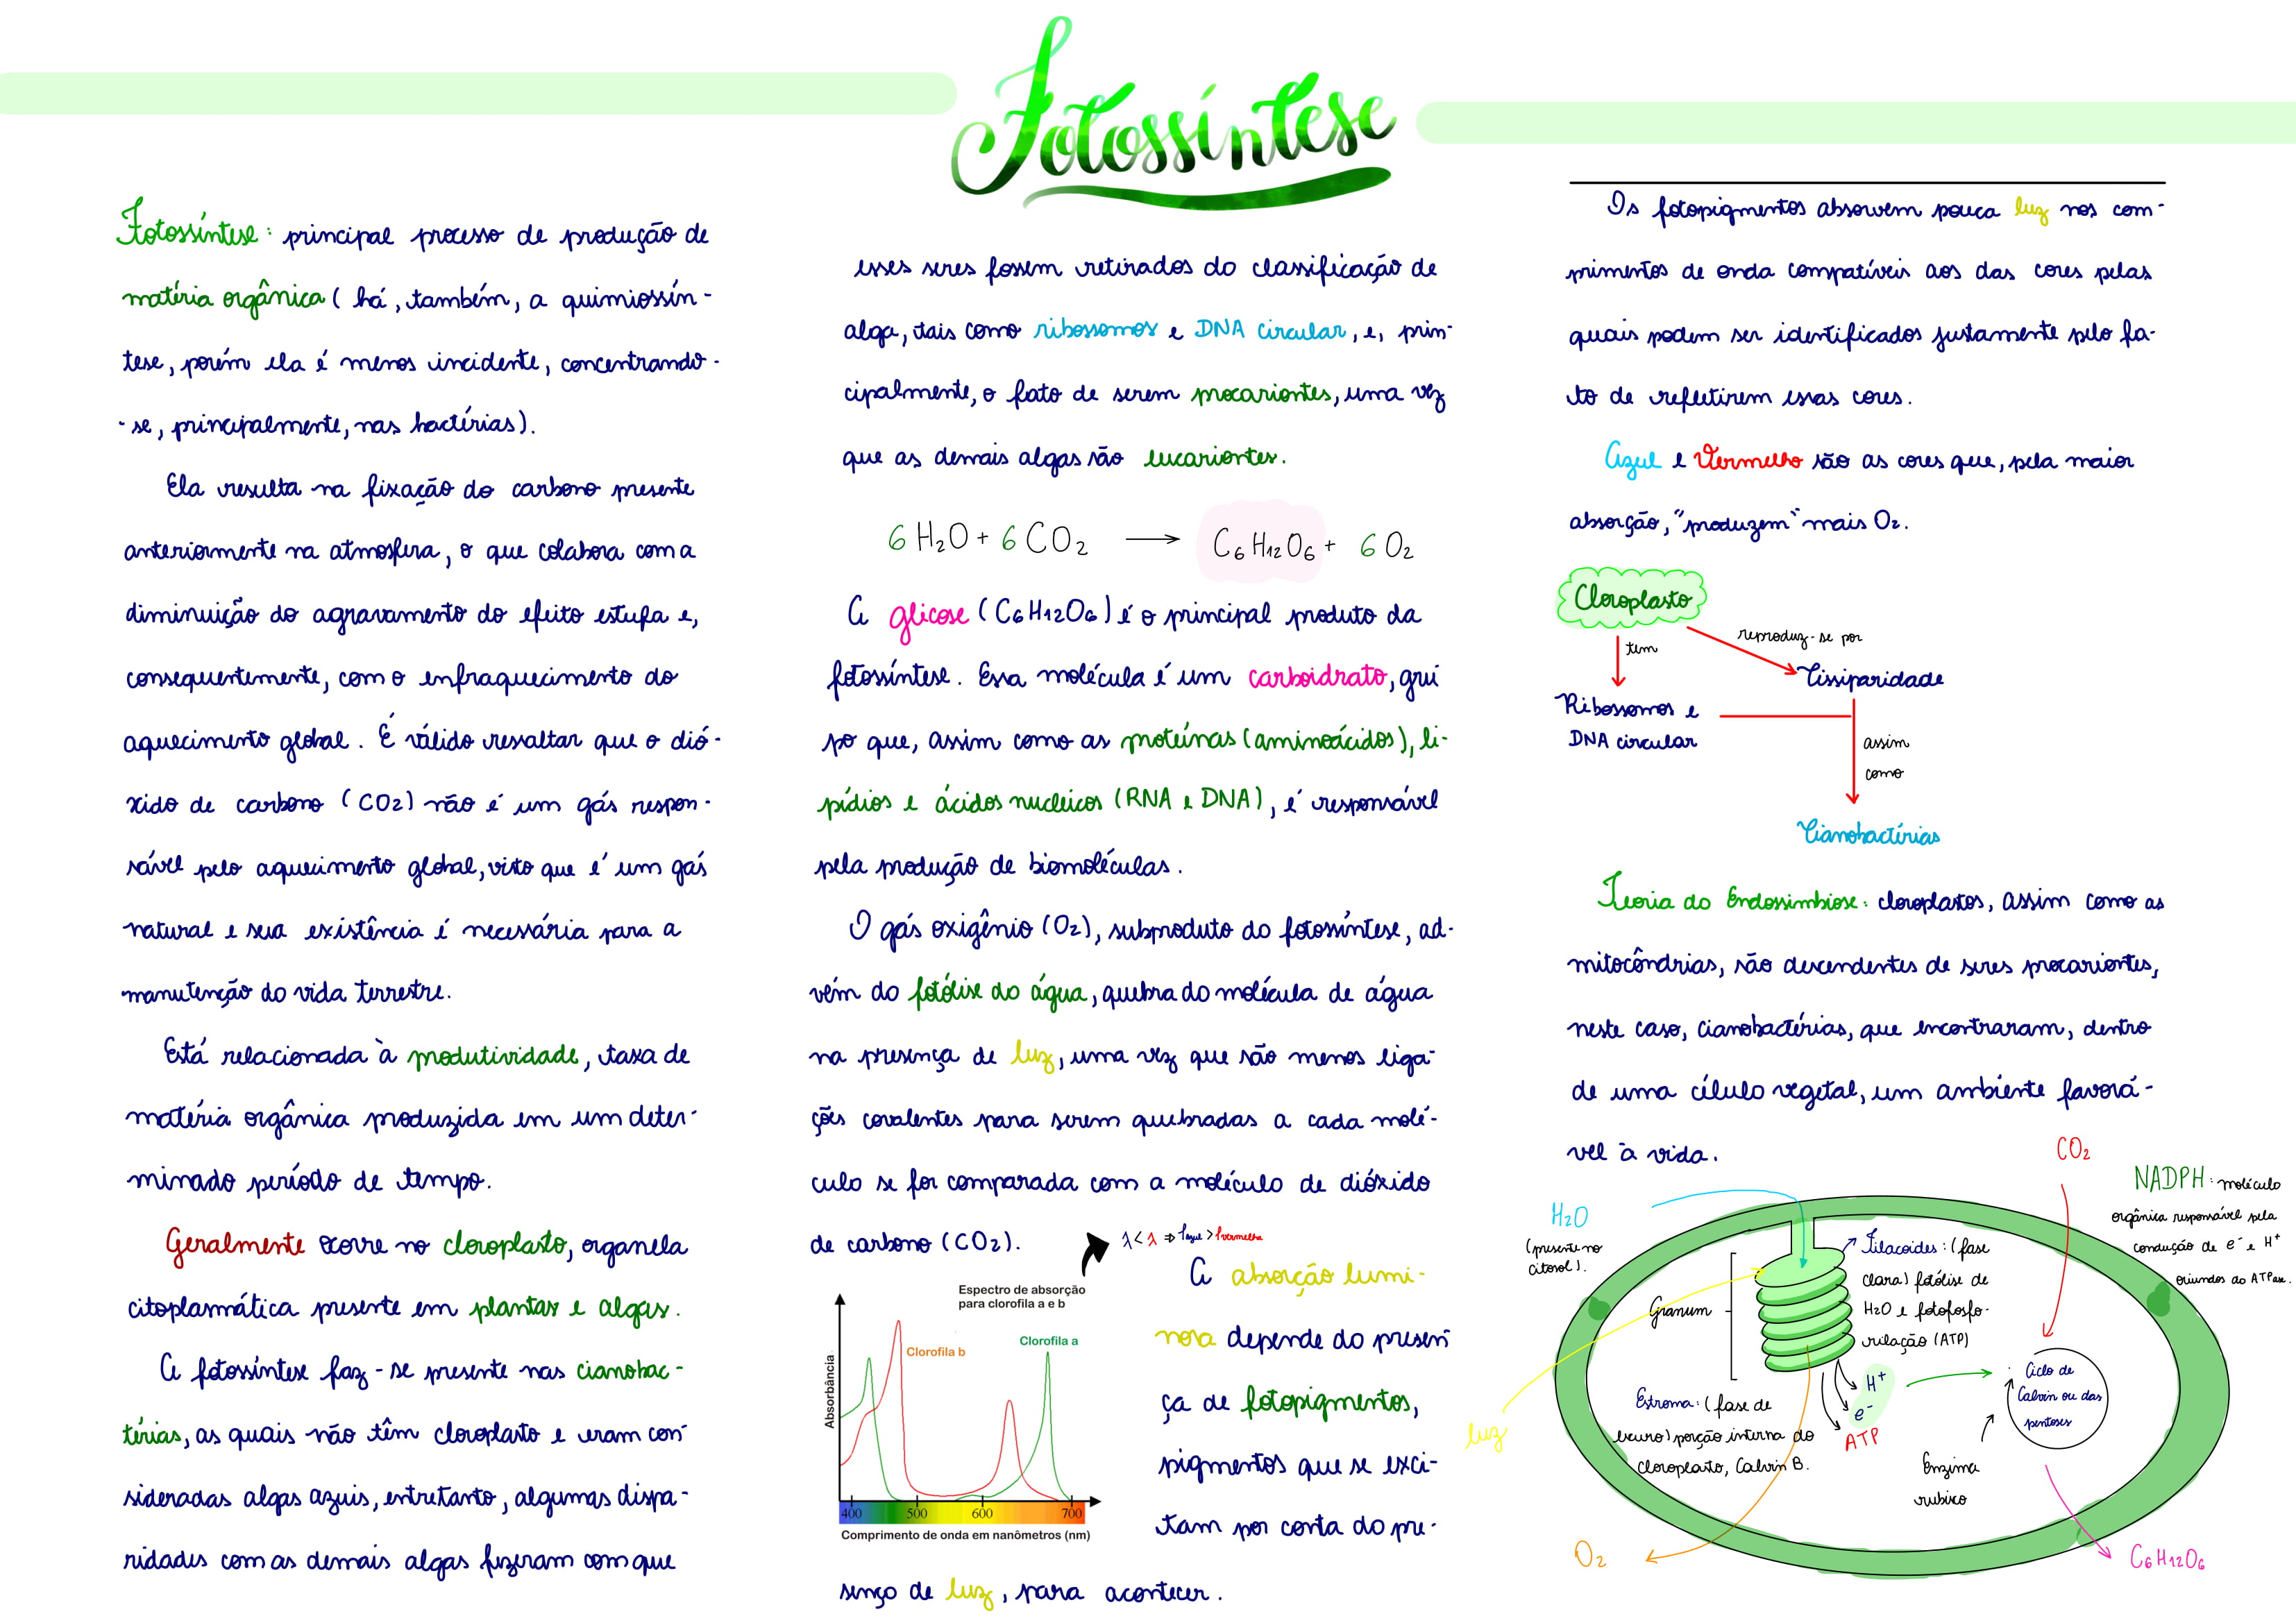 Fotossíntese
Fotossíntese: principal processo de produção de
matéria orgânica (há, também, a quimiossín-
tese, porém ela é menos incidente, concentrando-
-se, principalmente, nas bactérias).
Ela resulta na fixação do carbono presente
anteriormente na atmosfera, o que colabora com a
diminuição do agravamento do efeito estufa e,
consequentemente, com o enfraquecimento do
aquecimento global. É válido ressaltar que o dió-
xido de carbono (CO2) não é um gás respon-
sável pelo aquecimento global, visto que é um gás
natural e sua existência é necessária para a
manutenção do vida terrestre.
Está relacionada à produtividade, taxa de
matéria orgânica produzida em um deter-
minado período de tempo.
Geralmente ocorre no cloroplasto, organela
citoplasmática presente em plantas e algas.
A fotossíntese faz-se presente nas cianobac-
térias, as quais não têm cloroplasto e eram con-
sideradas algas azuis, entretanto, algumas dispa-
ridades com as demais algas fizeram com que
esses seres fossem retirados do classificação de
alga, tais como ribossomos e DNA circular, e, prin-
cipalmente, o fato de serem procariontes, uma vez
que as demais algas são eucariontes.
6 H2O + 6 CO2 → C6H12O6 + 6 O2
A glicose (C6H12O6) é o principal produto da
fotossíntese. Essa molécula é um carboidrato, gru
po que, assim como as proteínas (aminoácidos), li-
pídios e ácidos nucleicos (RNA e DNA), é responsável
pela produção de biomoléculas.
O gás oxigênio (O2), subproduto do fotossíntese, ad-
vém do fotólise do água, quebra do molécula de água
na presença de luz, uma vez que são menos liga-
ções covalentes para serem quebradas a cada molé-
culo se for comparada com a moléculo de dióxido
de carbono (CO2).
λ < λ ⇒ f azul > f vermelha
Espectro de absorção
para clorofila a e b
Clorofila b
Clorofila a
Absorbância
400 500 600 700
Comprimento de onda em nanômetros (nm)
A absorção lumi-
nosa depende do presen
ça de fotopigmentos,
pigmentos que se exci-
tam por conta do pre-
senço de luz, para acontecer.
Os fotopigmentos absorvem pouca luz nos com-
primentos de onda compatíveis aos das cores pelas
quais podem ser identificados justamente pelo fa-
to de refletirem essas cores.
Azul e Vermelho são as cores que, pela maior
absorção, "produzem" mais O2.
Cloroplasto
tem
reproduz-se por
Cissiparidade
Ribossomos e
DNA circular
assim
como
Cianobactérias
Teoria do Endossimbiose: cloroplastos, assim como as
mitocôndrias, são descendentes de seres procariontes,
neste caso, cianobactérias, que encontraram, dentro
de uma célulo vegetal, um ambiente favorá-
vel à vida.
CO2
NADPH: moléculo
orgânica responsável pela
condução de e⁻ e H⁺
oriundos do ATPase.
H2O
(presente no
citosol).
Tilacoides: (fase
clara) fotólise de
H2O e fotofosfo-
rilação (ATP)
Granum
Estroma: (fase de
escuro) porção interna do
cloroplasto, Calvin B.
H⁺
e⁻
ATP
Ciclo de
Calvin ou das
pentoses
Enzima
rubisco
luz
O2
C6H12O6